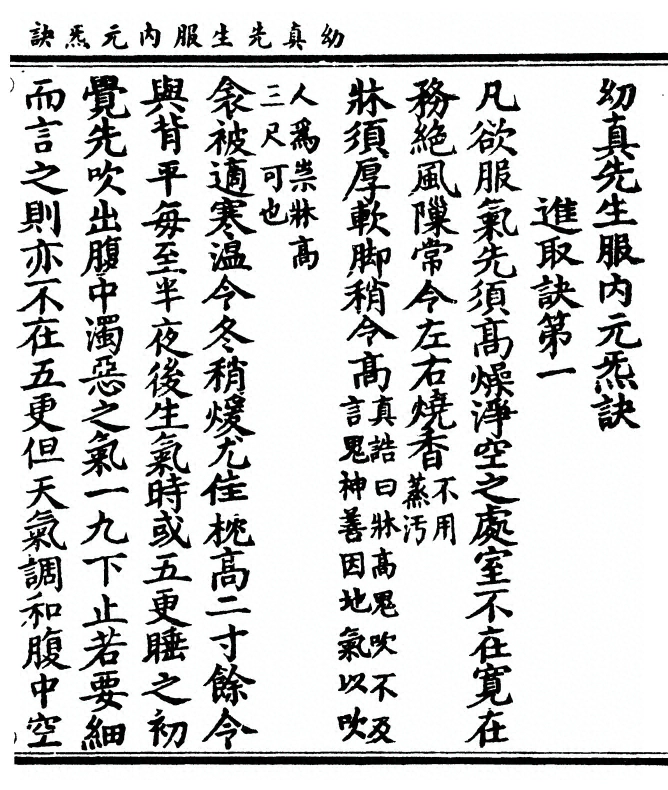 幼真先生服内元炁訣
幼真先生服内元炁訣
進取訣第一
凡欲服氣先須高燥淨空之處室不在寛在
務絶風隟常令左右燒香不用
蒸汚
牀須厚軟脚稍令高真誥曰牀高鬼吹不及
言鬼神善因地氣以吹
人爲祟牀高
三尺可也
衾被適寒温令冬稍煖尤佳枕高二寸餘令
與背平每至半夜後生氣時或五更睡之初
覺先吹出腹中濁惡之氣一九下止若要細
而言之則亦不在五更但天氣調和腹中空